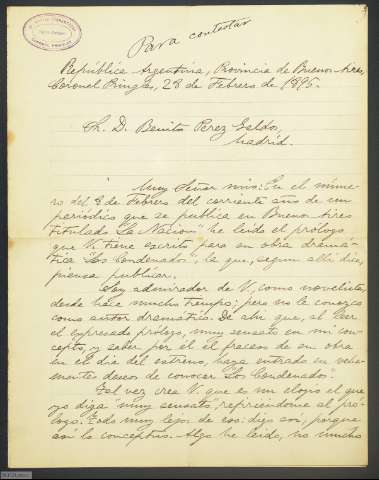 Para contestar
República Argentina, Provincia de Buenos Aires,
Coronel Pringles, 28 de Febrero de 1895.
Sr. D. Benito Perez Galdos,
Madrid.
Muy Señor mio: En el núme-
ro del 8 de Febrero del corriente año de un
periódico que se publica en Buenos Aires
titulado "La Nacion" he leido el prólogo
que V. tiene escrito para su obra dramá-
tica "Los Condenados", la que, segun alli dice,
piensa publicar.
Soy admirador de V. como novelista,
desde hace mucho tiempo; pero no le conozco
como autor dramático. De ahi que, al leer
el expresado prólogo, muy sensato en mi con-
cepto, y saber por él el fracaso de su obra
en el dia del estreno, haya entrado en vehe-
mentes deseos de conocer "Los Condenados".
Tal vez crea V. que es un elogio el que
yo diga "muy sensato", refiriéndome al pró-
logo. Todo muy lejos de eso: digo asi, porque
asi lo conceptuo. Algo he leido, no mucho